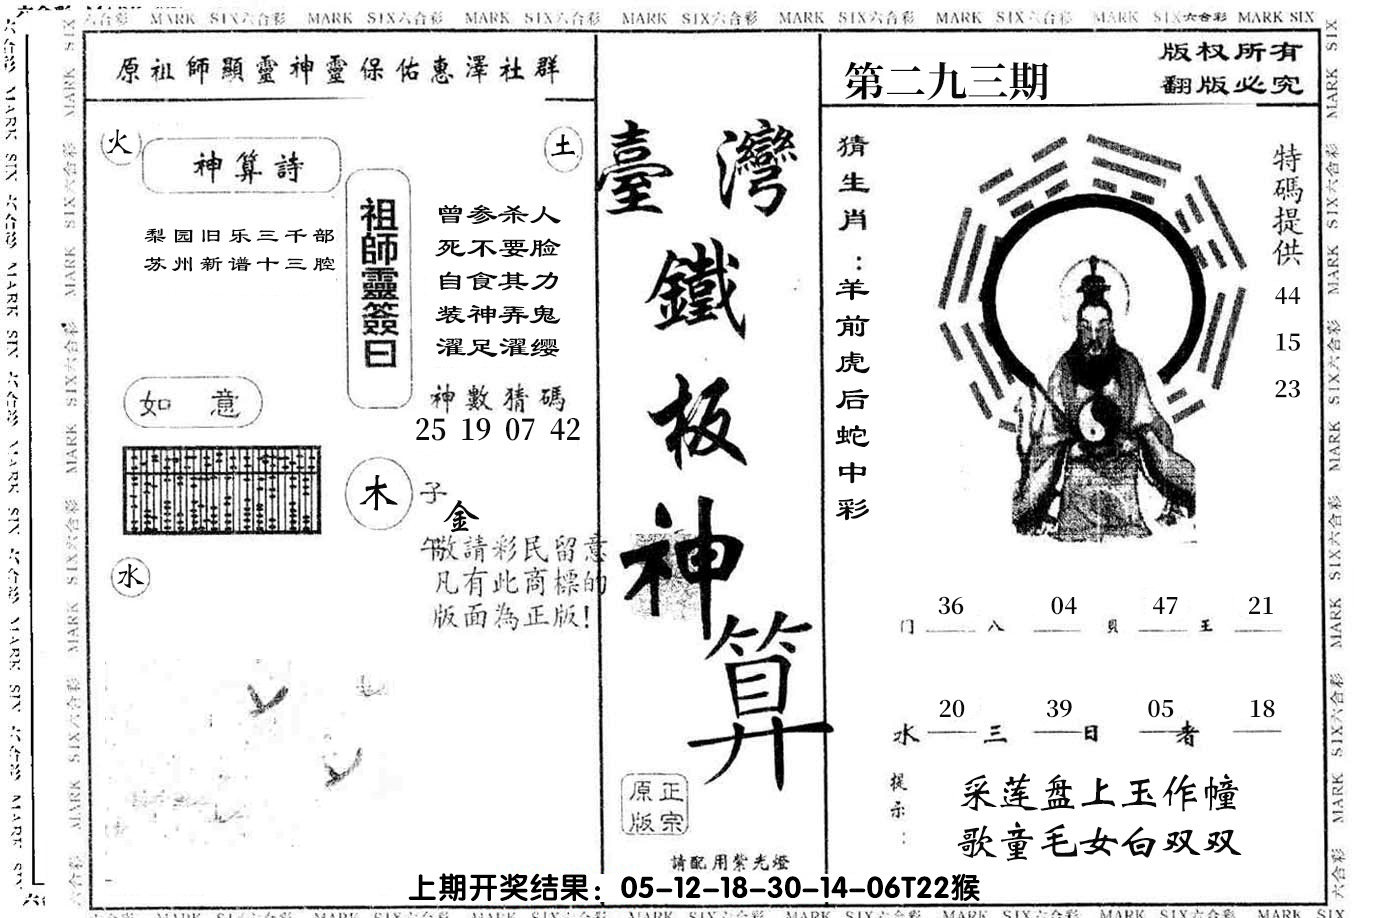 六合彩 MARK SIX六合彩 MARK SIX六合彩 MARK SIX六合彩 MARK SIX六合彩 MARK SIX六合彩 MARK SIX六合彩 MARK SIX六合彩 MARK SIX
原祖師顯靈神靈保佑惠澤社群
火
土
神算詩
梨园旧乐三千部
苏州新谱十三腔
祖師靈簽曰
曾参杀人
死不要脸
自食其力
装神弄鬼
濯足濯缨
神數猜碼
25 19 07 42
如意
木
子
金
午
水
敬請彩民留意
凡有此商標的
版面為正版!
臺灣
鐵
板
神
算
正宗
原版
請配用紫光燈
第二九三期
版权所有
翻版必究
猜生肖:羊前虎后蛇中彩
特碼提供
44
15
23
36 04 47 21
门 八 貝 王
20 39 05 18
水 三 日 者
提示:
采莲盘上玉作幢
歌童毛女白双双
上期开奖结果：05-12-18-30-14-06T22猴